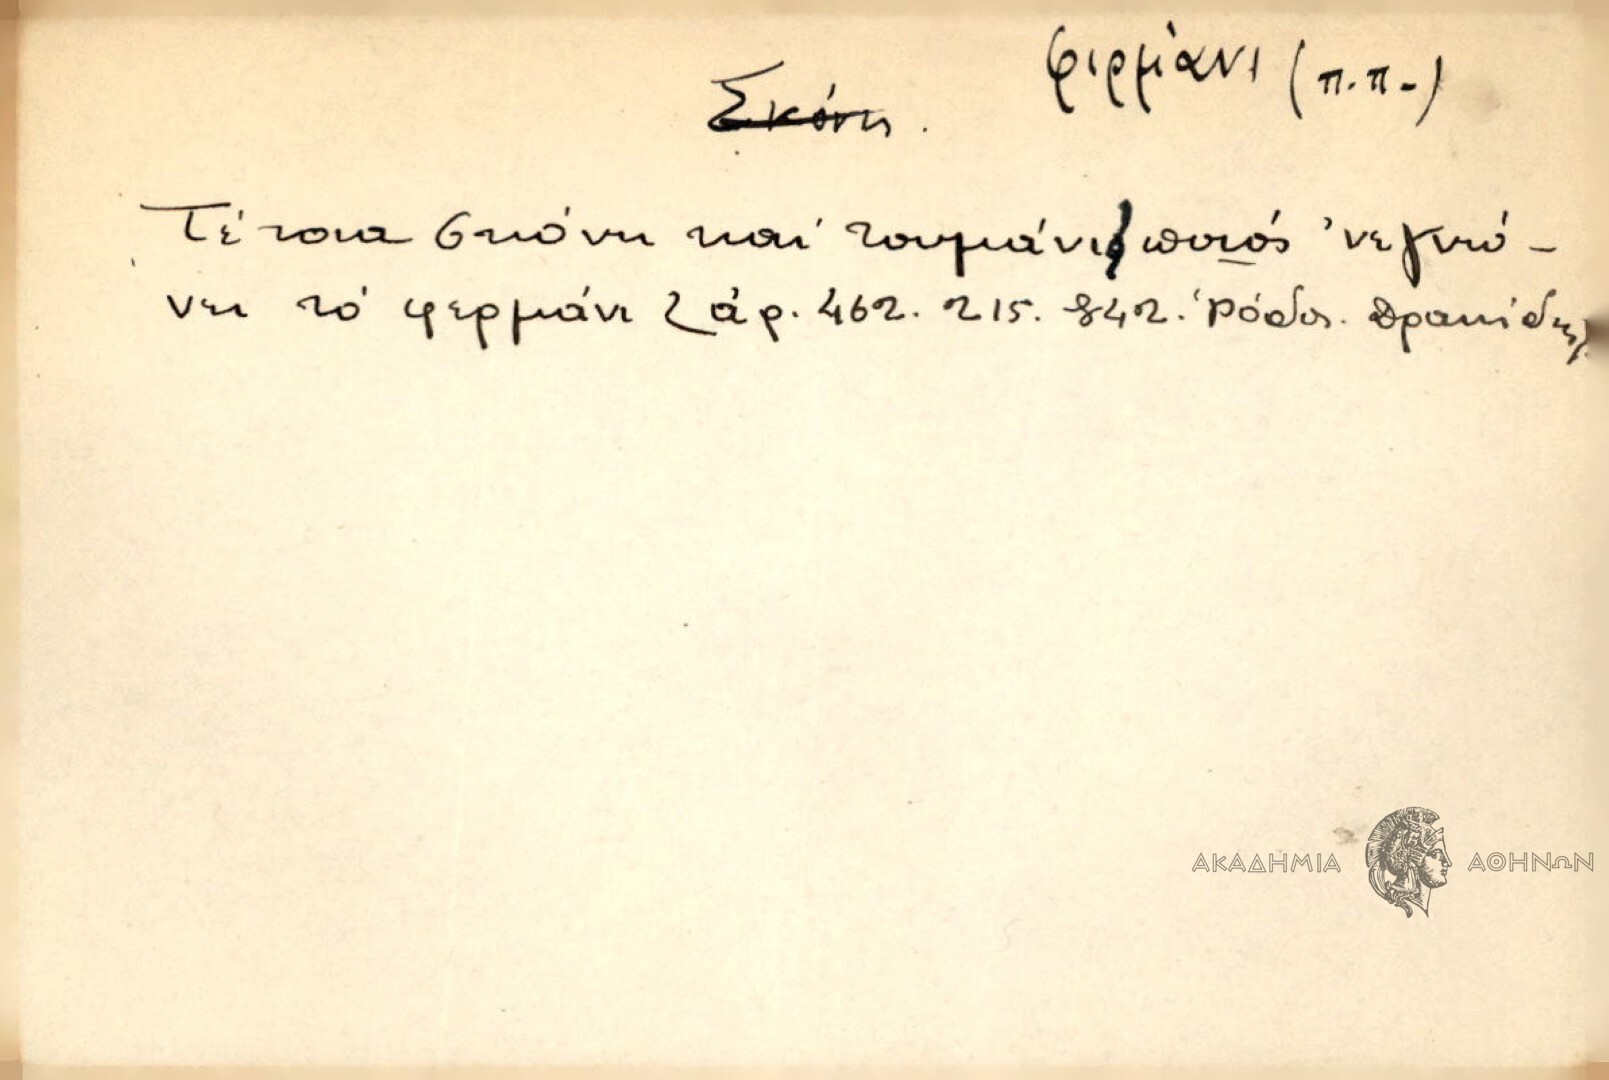 φιρμάνι (π.π.)
Σκόνη.
Τέτοια σκόνη καί τουμάνι ποιός 'νεγνώ-
νει τό φερμάνι (άρ. 462. 215. 842. Ρόδος.
ΑΚΑΔΗΜΙΑ ΑΘΗΝΩΝ